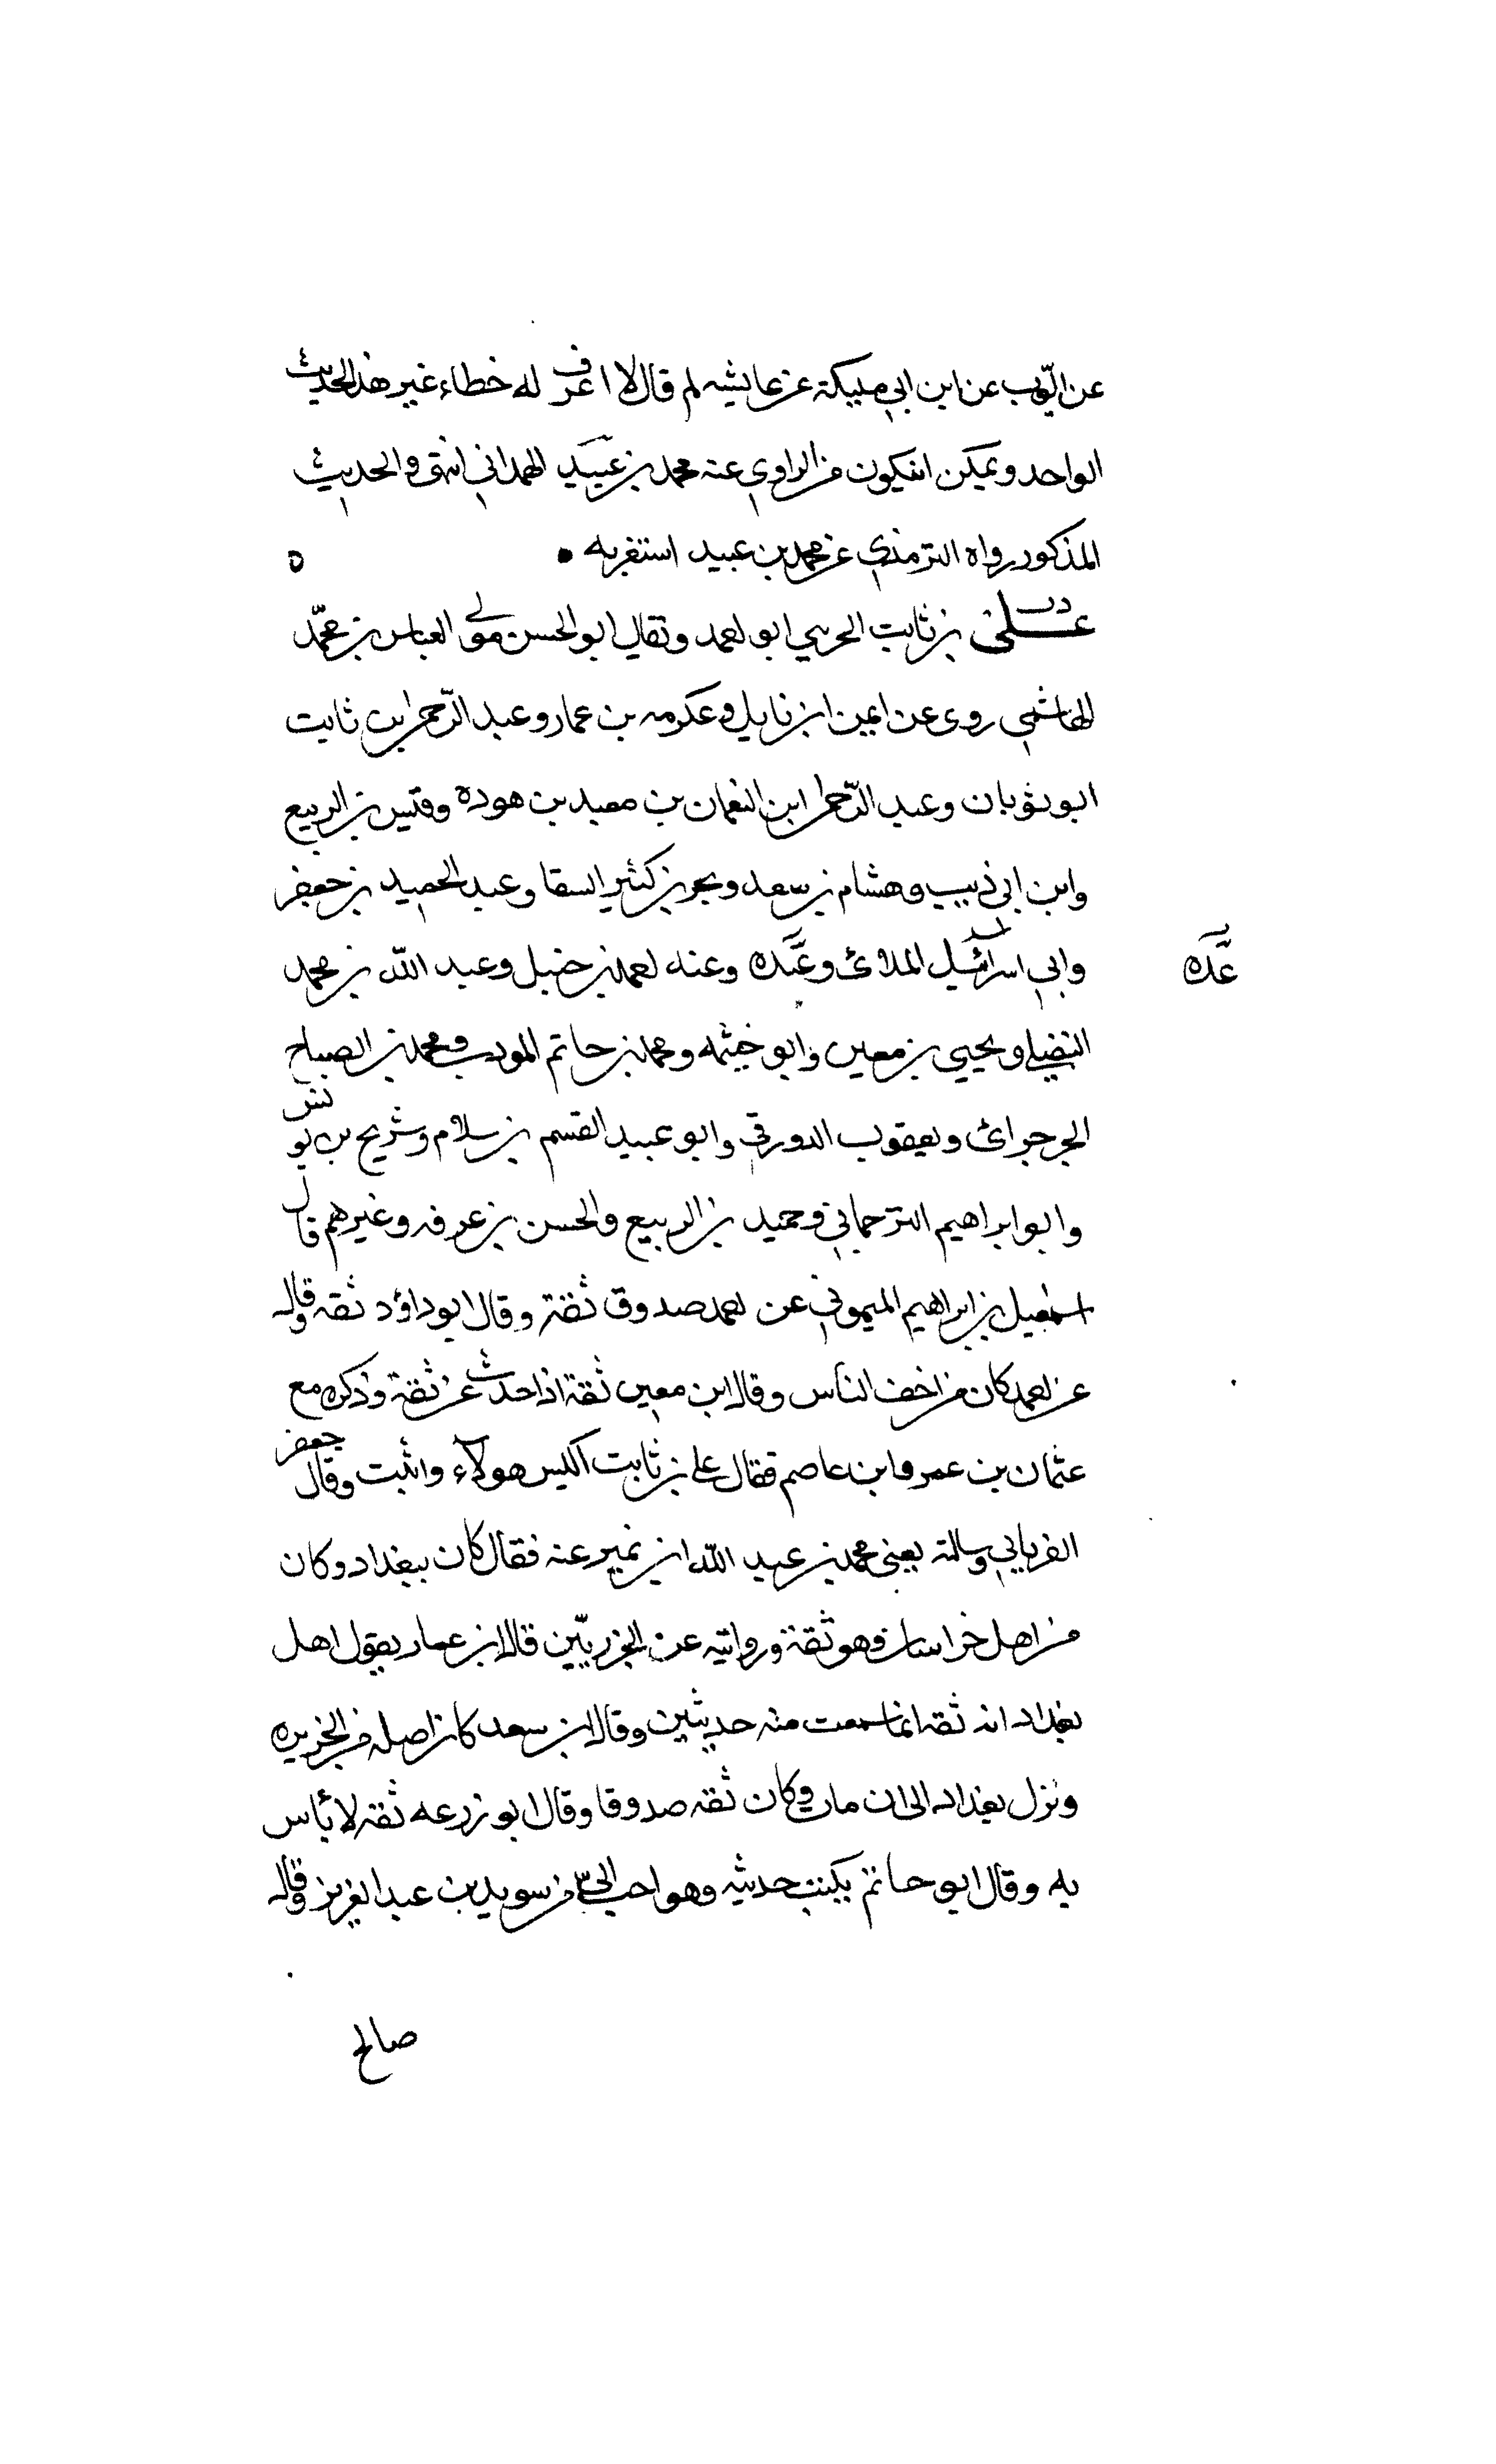 عن ايّوب عن ابن ابي مليكة عن عايشه لم قال لا اعرف له خطاء غير هذ الحديث
الواحد ويمكن انيكون من الراوي عنه محمد بن عبيد الهمداني انتهى والحديث
المذكور رواه الترمذي عن محمد بن عبيد استغربه ٥
د ت علي بن ثابت الجرري ابو احمد ويقال ابو الحسن مولى العباس بن محمّد
الهاشمي روى عن ايمن ابن نابل وعكرمه بن عمار وعبد الرّحمن ابن ثابت
ابو ثوبان وعبد الرّحمن ابن النعمان بن معبد بن هوده وقيس بن الربيع
وابن ابي ذيب وهشام بن سعد وبحر بن كثير السقا وعبد الحميد بن جعفر
وابي اسرآئيل الملائ وعدّه وعنه احمد بن حنبل وعبد اللّه بن محمد
عدّه
النفيلي ويحيي بن معين وابو خيثمه ومحمد بن حاتم المودب ومحمد بن الصباح
الجرجرائ ويعقوب الدورقي وابو عبيد القسم بن سلام وشريح بن يونس
وابو ابراهيم الترجماني وحميد بن الربيع والحسن بن عرفه وغيرهم قال
اسمعيل بن ابراهيم الميموني عن احمد صدوق ثقة وقال ابو داؤد ثقه وقال
عن احمد كان من اخف الناس وقال ابن معين ثقة اذا حدث عن ثقة وذكره مع
عثمان بن عمر وابن عاصم فقال علي بن ثابت اكيس هولآء واثبت وقال جعفر
الفريابي وسالته يعني محمد بن عبد اللّه ابن نمير عنه فقال كان ببغداد وكان
من اهل خراسان وهو ثقة وروايته عن الجزريّين قال ابن عمار يقول اهل
بغداد انه ثقه انما سمعت منه حديثين وقال ابن سعد كان اصله من الجزيره
ونزل بغداد الى ان مات وكان ثقه صدوقا وقال ابو زرعه ثقه لا بأس
به وقال ابو حاتم يكتب حديثه وهو احب الىّ من سويد بن عبد العزيز وقال
صالح